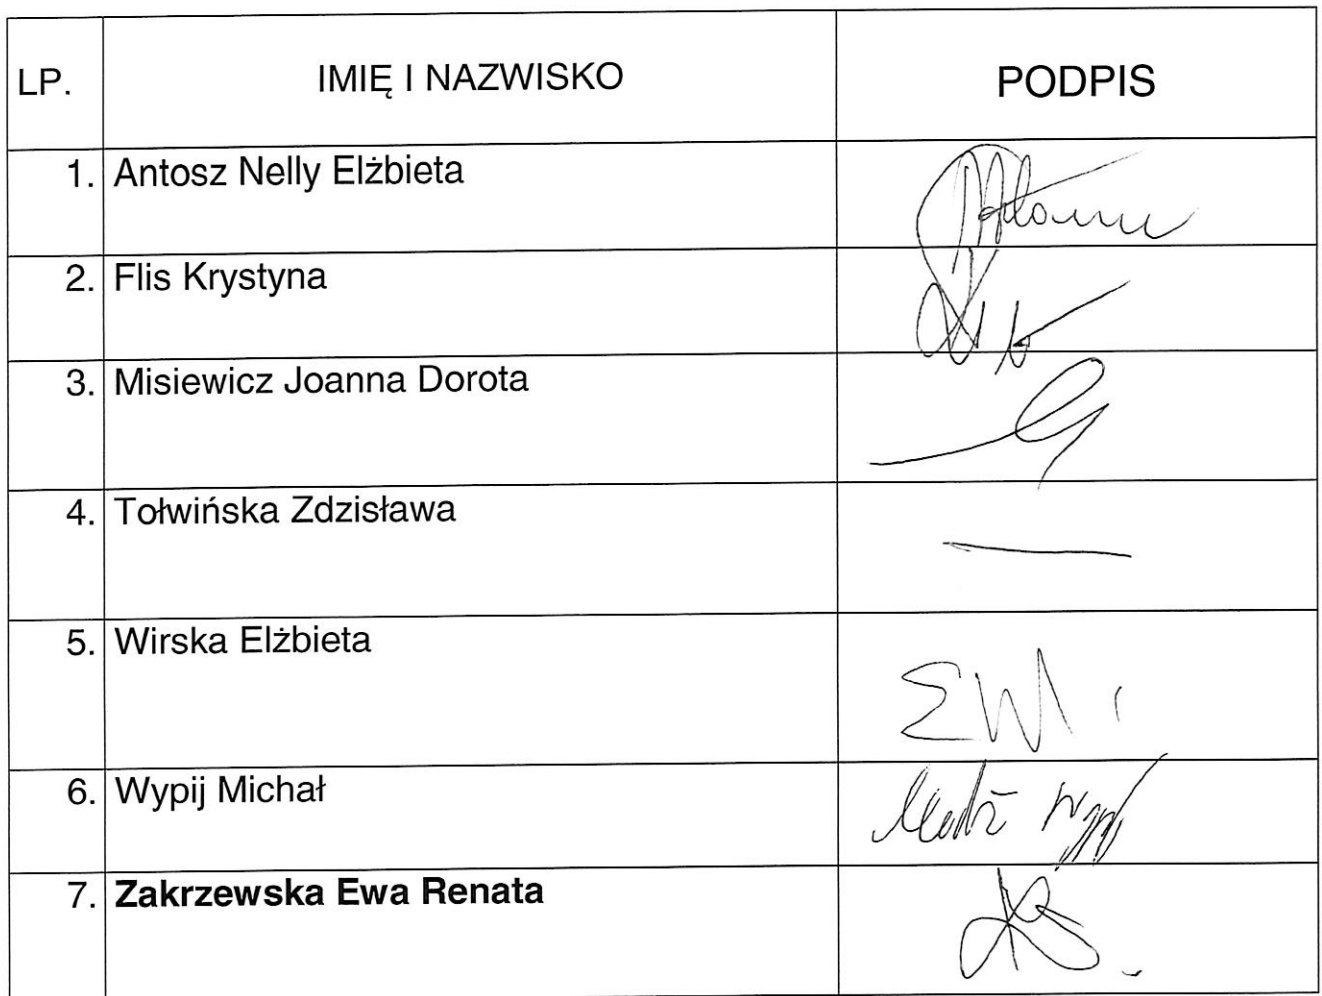 LP. IMIĘ I NAZWISKO PODPIS
1. Antosz Nelly Elżbieta
2. Flis Krystyna
3. Misiewicz Joanna Dorota
4. Tołwińska Zdzisława
5. Wirska Elżbieta
6. Wypij Michał
7. Zakrzewska Ewa Renata